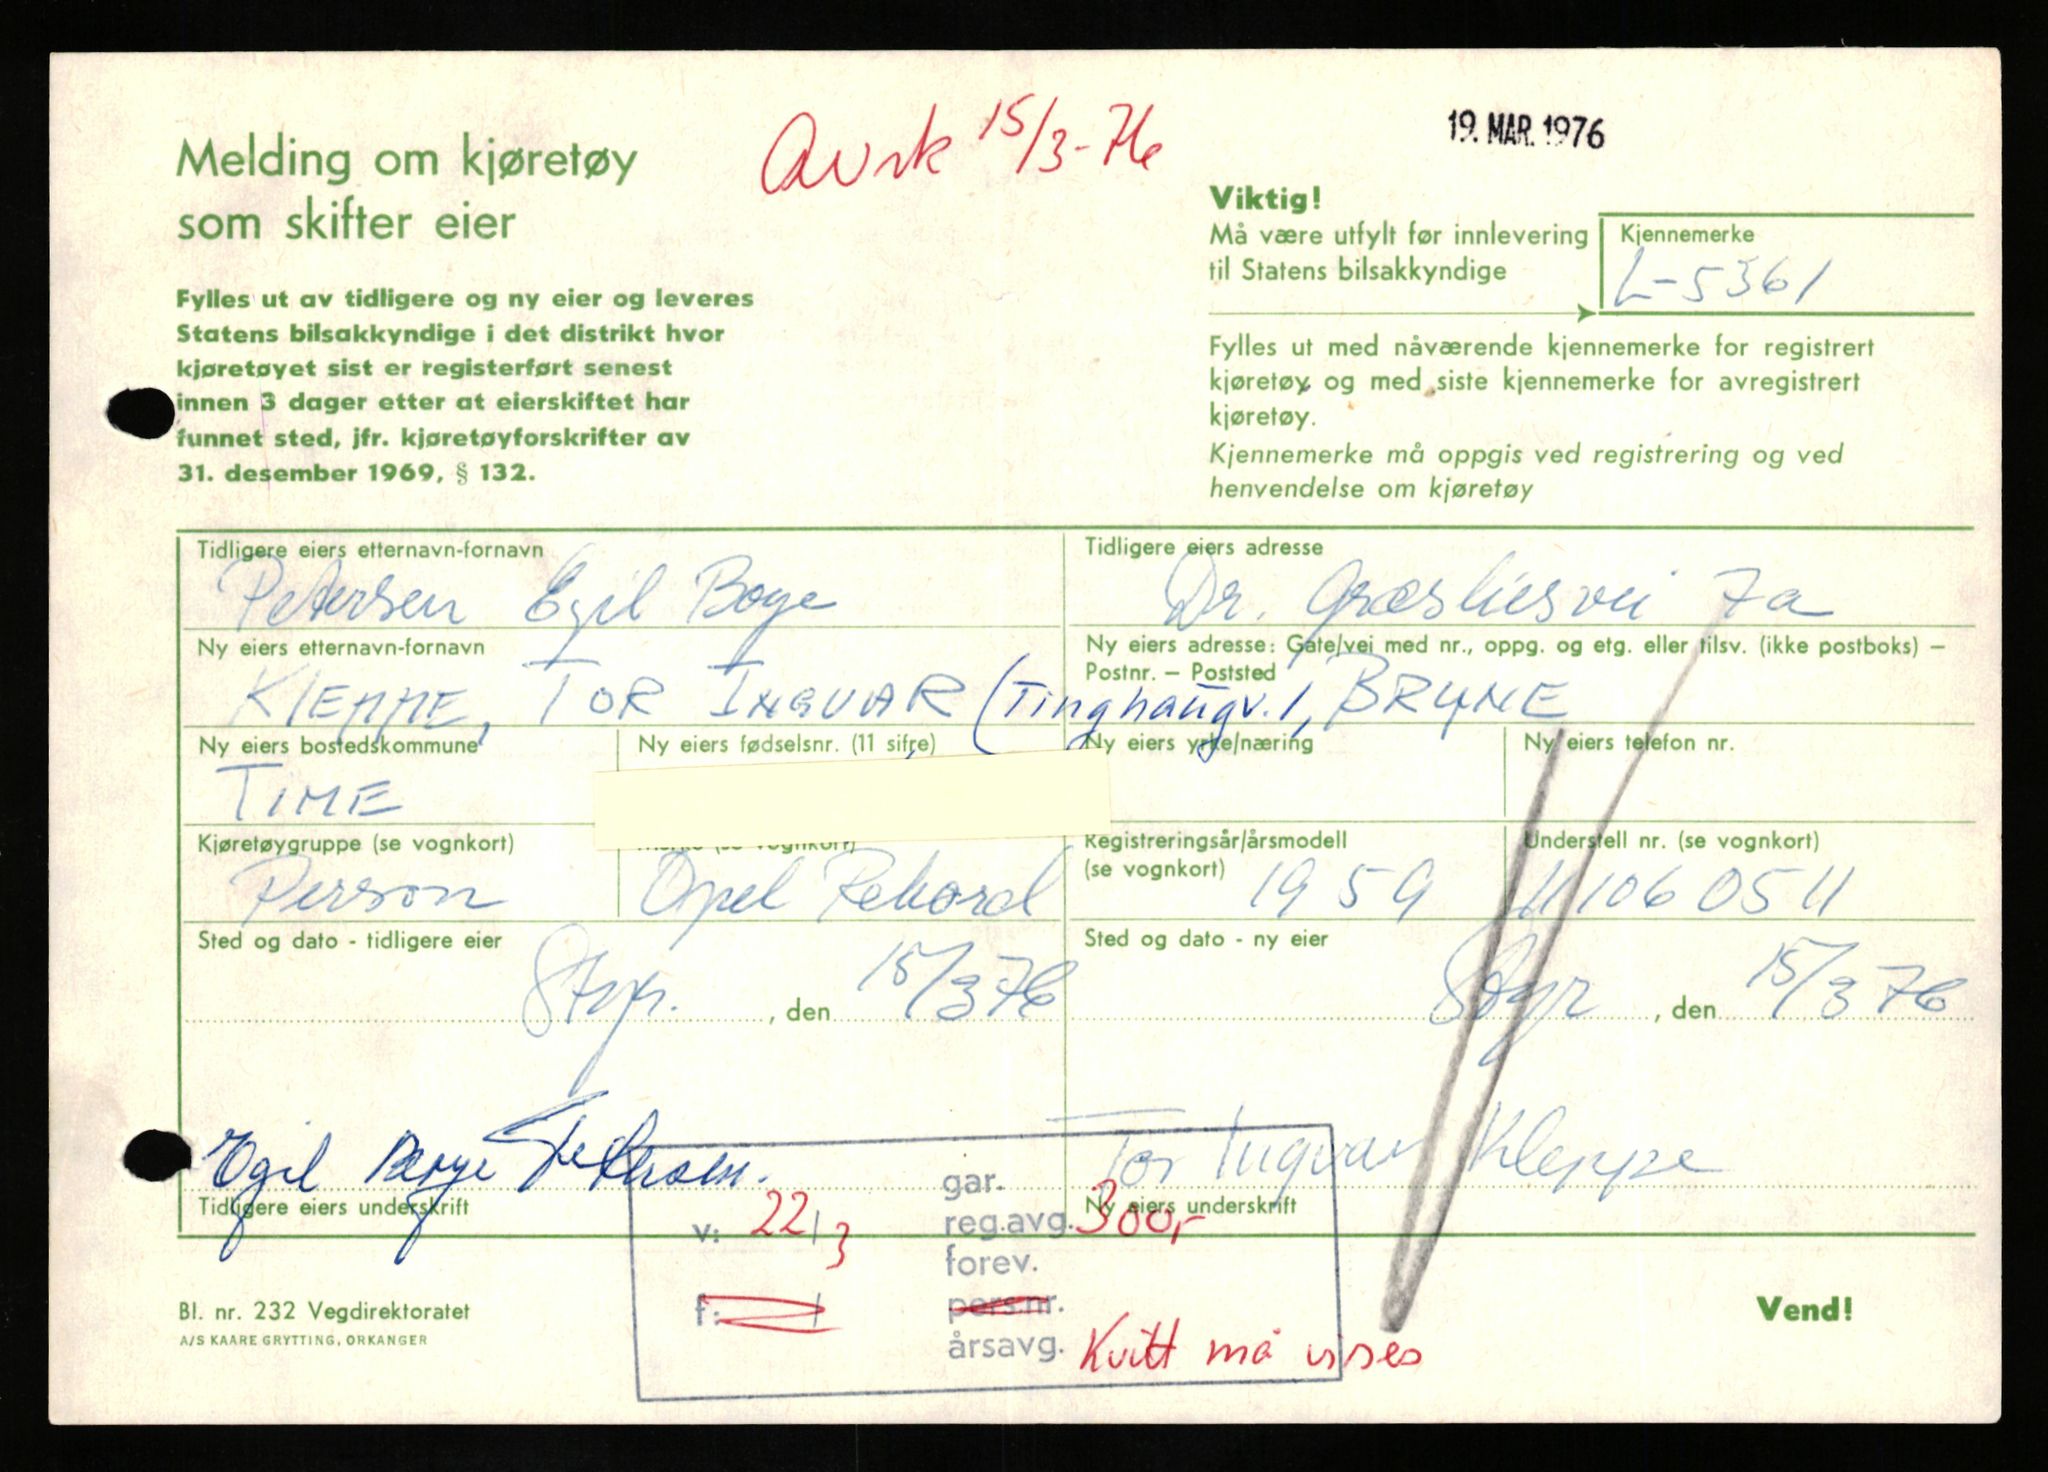 Avsk 15/3-76
19. MAR. 1976
Melding om kjøretøy
som skifter eier
Fylles ut av tidligere og ny eier og leveres
Statens bilsakkyndige i det distrikt hvor
kjøretøyet sist er registerført senest
innen 3 dager etter at eierskiftet har
funnet sted, jfr. kjøretøyforskrifter av
31. desember 1969, § 132.
Viktig!
Må være utfylt før innlevering
til Statens bilsakkyndige
Kjennemerke
L-5361
Fylles ut med nåværende kjennemerke for registrert
kjøretøy og med siste kjennemerke for avregistrert
kjøretøy.
Kjennemerke må oppgis ved registrering og ved
henvendelse om kjøretøy
Tidligere eiers etternavn-fornavn
Petersen Egil Boye
Tidligere eiers adresse
Dr. Græsliesvei 7a
Ny eiers etternavn-fornavn
KLEPPE, TOR INGVAR
Ny eiers adresse: Gate/vei med nr., oppg. og etg. eller tilsv. (ikke postboks) –
Postnr. – Poststed
(Tinghaugv. 1, BRYNE
Ny eiers bostedskommune
TIME
Ny eiers fødselsnr. (11 sifre)
Ny eiers yrke/næring
Ny eiers telefon nr.
Kjøretøygruppe (se vognkort)
Person
Merke (se vognkort)
Opel Rekord
Registreringsår/årsmodell
(se vognkort)
1959
Understell nr. (se vognkort)
11 106 05 11
Sted og dato - tidligere eier
, den 15/3 76
Sted og dato - ny eier
, den 15/3 76
Egil Boye Petersen.
Tidligere eiers underskrift
Tor Ingvar Kleppe
Ny eiers underskrift
gar.
v: 22/3
reg.avg. 300,-
forev.
f: /
pers.nr.
årsavg. Kvitt må vises
Bl. nr. 232 Vegdirektoratet
A/S KAARE GRYTTING, ORKANGER
Vend!